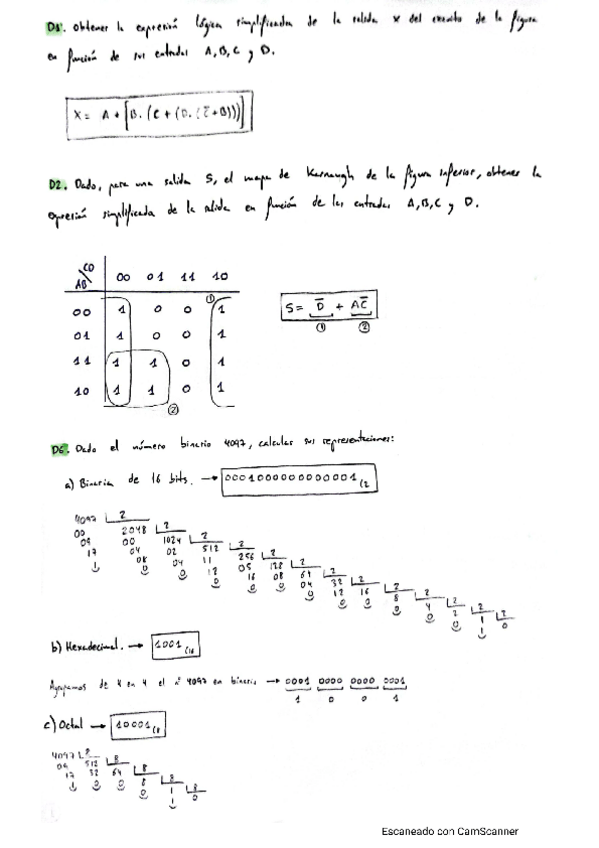 D1. Obtener la expresión lógica simplificada de la salida X del circuito de la figura
en función de sus entradas A, B, C y D.
X = A + [B. (C + (D. (C̅ + B)))]
D2. Dado, para una salida S, el mapa de Karnaugh de la figura inferior, obtener la
expresión simplificada de la salida en función de las entradas A, B, C y D.
CD
AB
00 01 11 10
①
00 1 0 0 1
01 1 0 0 1
11 1 1 0 1
10 1 1 0 1
②
S = D̅ + AC̅
① ②
D6. Dado el número binario 4097, calcular sus representaciones:
a) Binaria de 16 bits. → 0001000000000001(2
4097 2
00 2048 2
09 00 1024 2
17 04 02 512 2
1 08 04 11 256 2
0 0 12 05 128 2
0 16 08 64 2
0 0 04 32 2
0 12 16 2
0 0 8 2
0 4 2
0 2 2
0 1 2
1 0
b) Hexadecimal. → 1001(16
Agrupamos de 4 en 4 el nº 4097 en binario → 0001 0000 0000 0001
1 0 0 1
c) Octal → 10001(8
4097 8
09 512 8
17 32 64 8
1 0 0 8 8
0 1 8
1 0
Escaneado con CamScanner